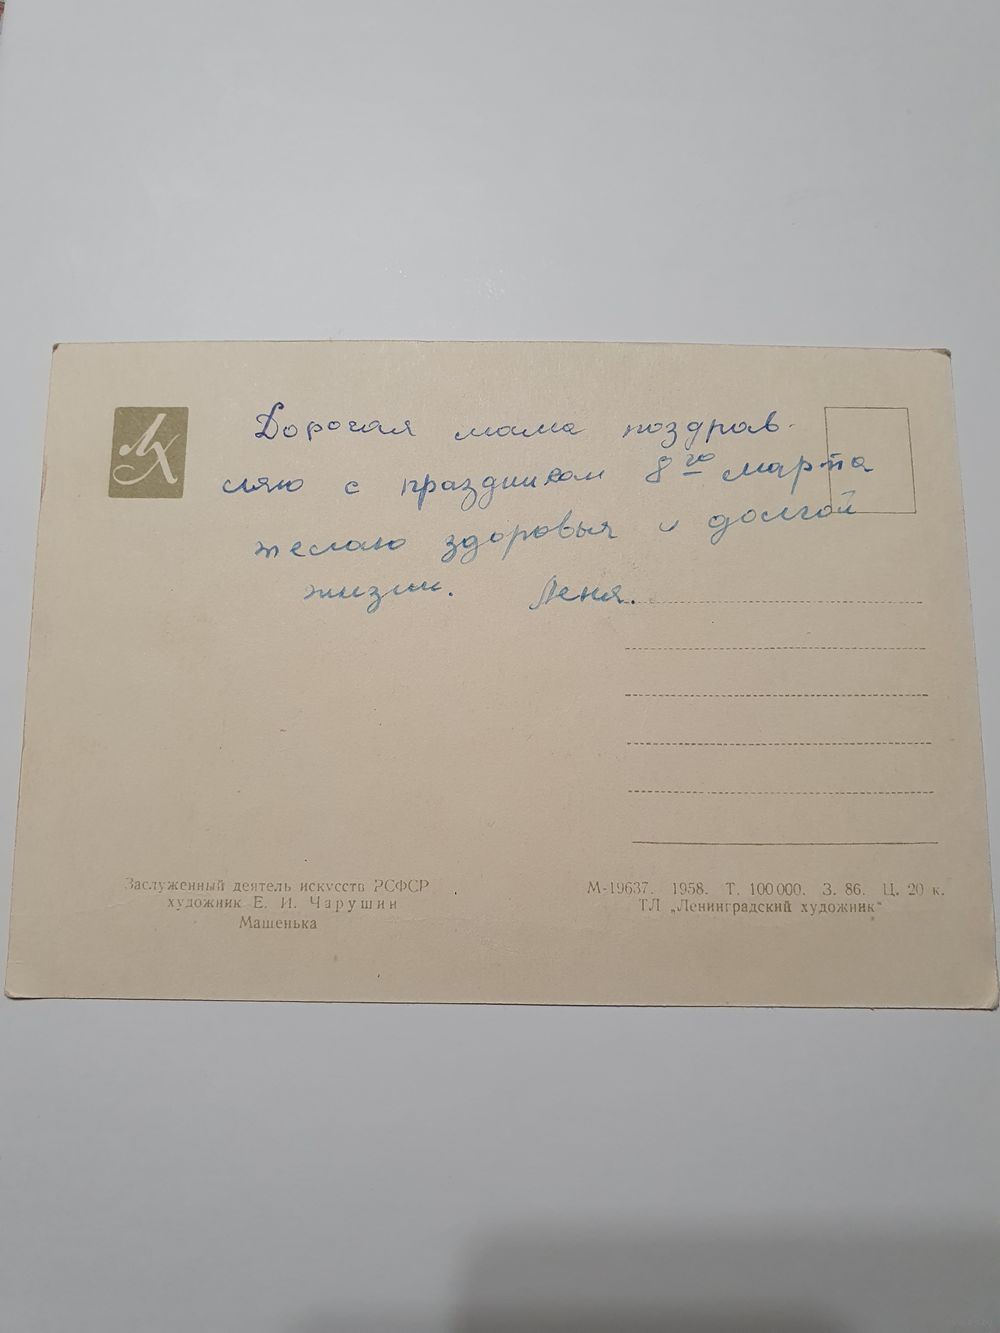 ЛХ
Дорогая мама поздрав-
ляю с праздником 8го марта
желаю здоровья и долгой
жизни. Леня.
Заслуженный деятель искусств РСФСР
художник Е. И. Чарушин
Машенька
М-19637. 1958. Т. 100 000. З. 86. Ц. 20 к.
ТЛ „Ленинградский художник“